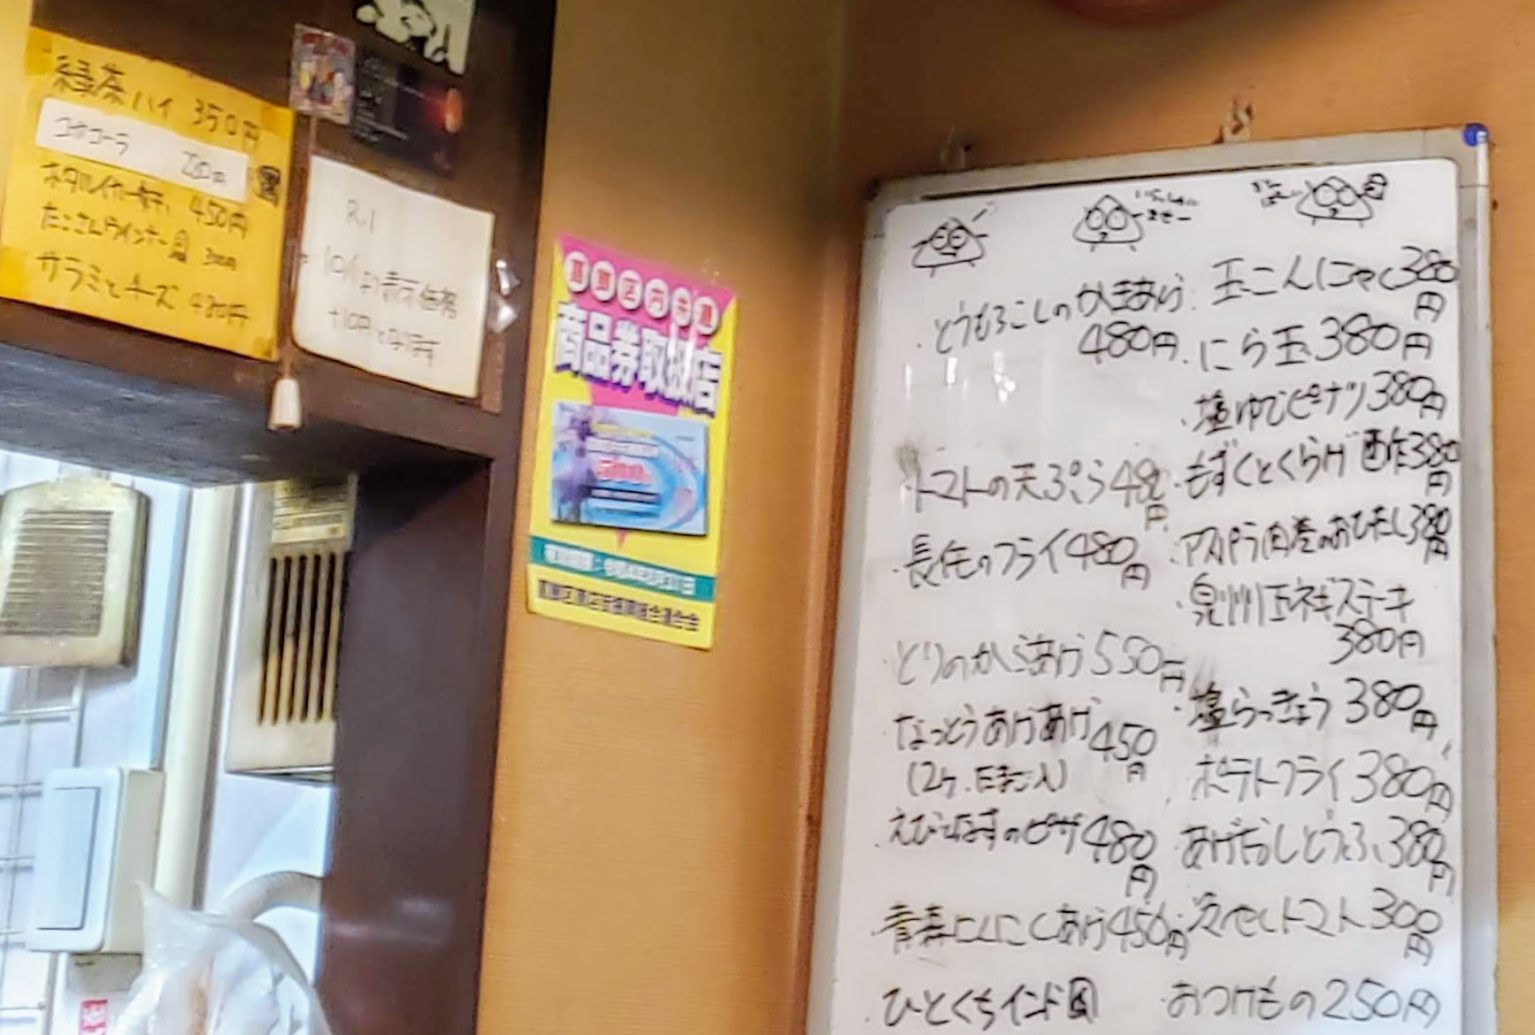 緑茶ハイ 350円
コカコーラ 280円
450円
たこさんウインナー 300円
サラミとチーズ 480円
R.1
10%より表示価格
+10円となります
葛飾区内共通
商品券取扱店
葛飾区商店街振興組合連合会
いらっしゃい
ませー
・とうもろこしのかきあげ
480円
・トマトの天ぷら 480
円
・長芋のフライ 480円
・とりのからあげ 550円
なっとうあげあげ 450円
(2ケ.たまご入)
・えびとなすのピザ 480円
・青森にんにくあげ 450円
ひとくちインド
玉こんにゃく 380円
・にら玉 380円
・塩ゆでピーナツ 380円
・もずくとくらげ酢 380円
・アスパラ肉巻のおひたし 380円
・泉州玉ネギステーキ
380円
・塩らっきょう 380円
・ポテトフライ 380円
あげだしどうふ 380円
冷やしトマト 300円
おつけもの 250円